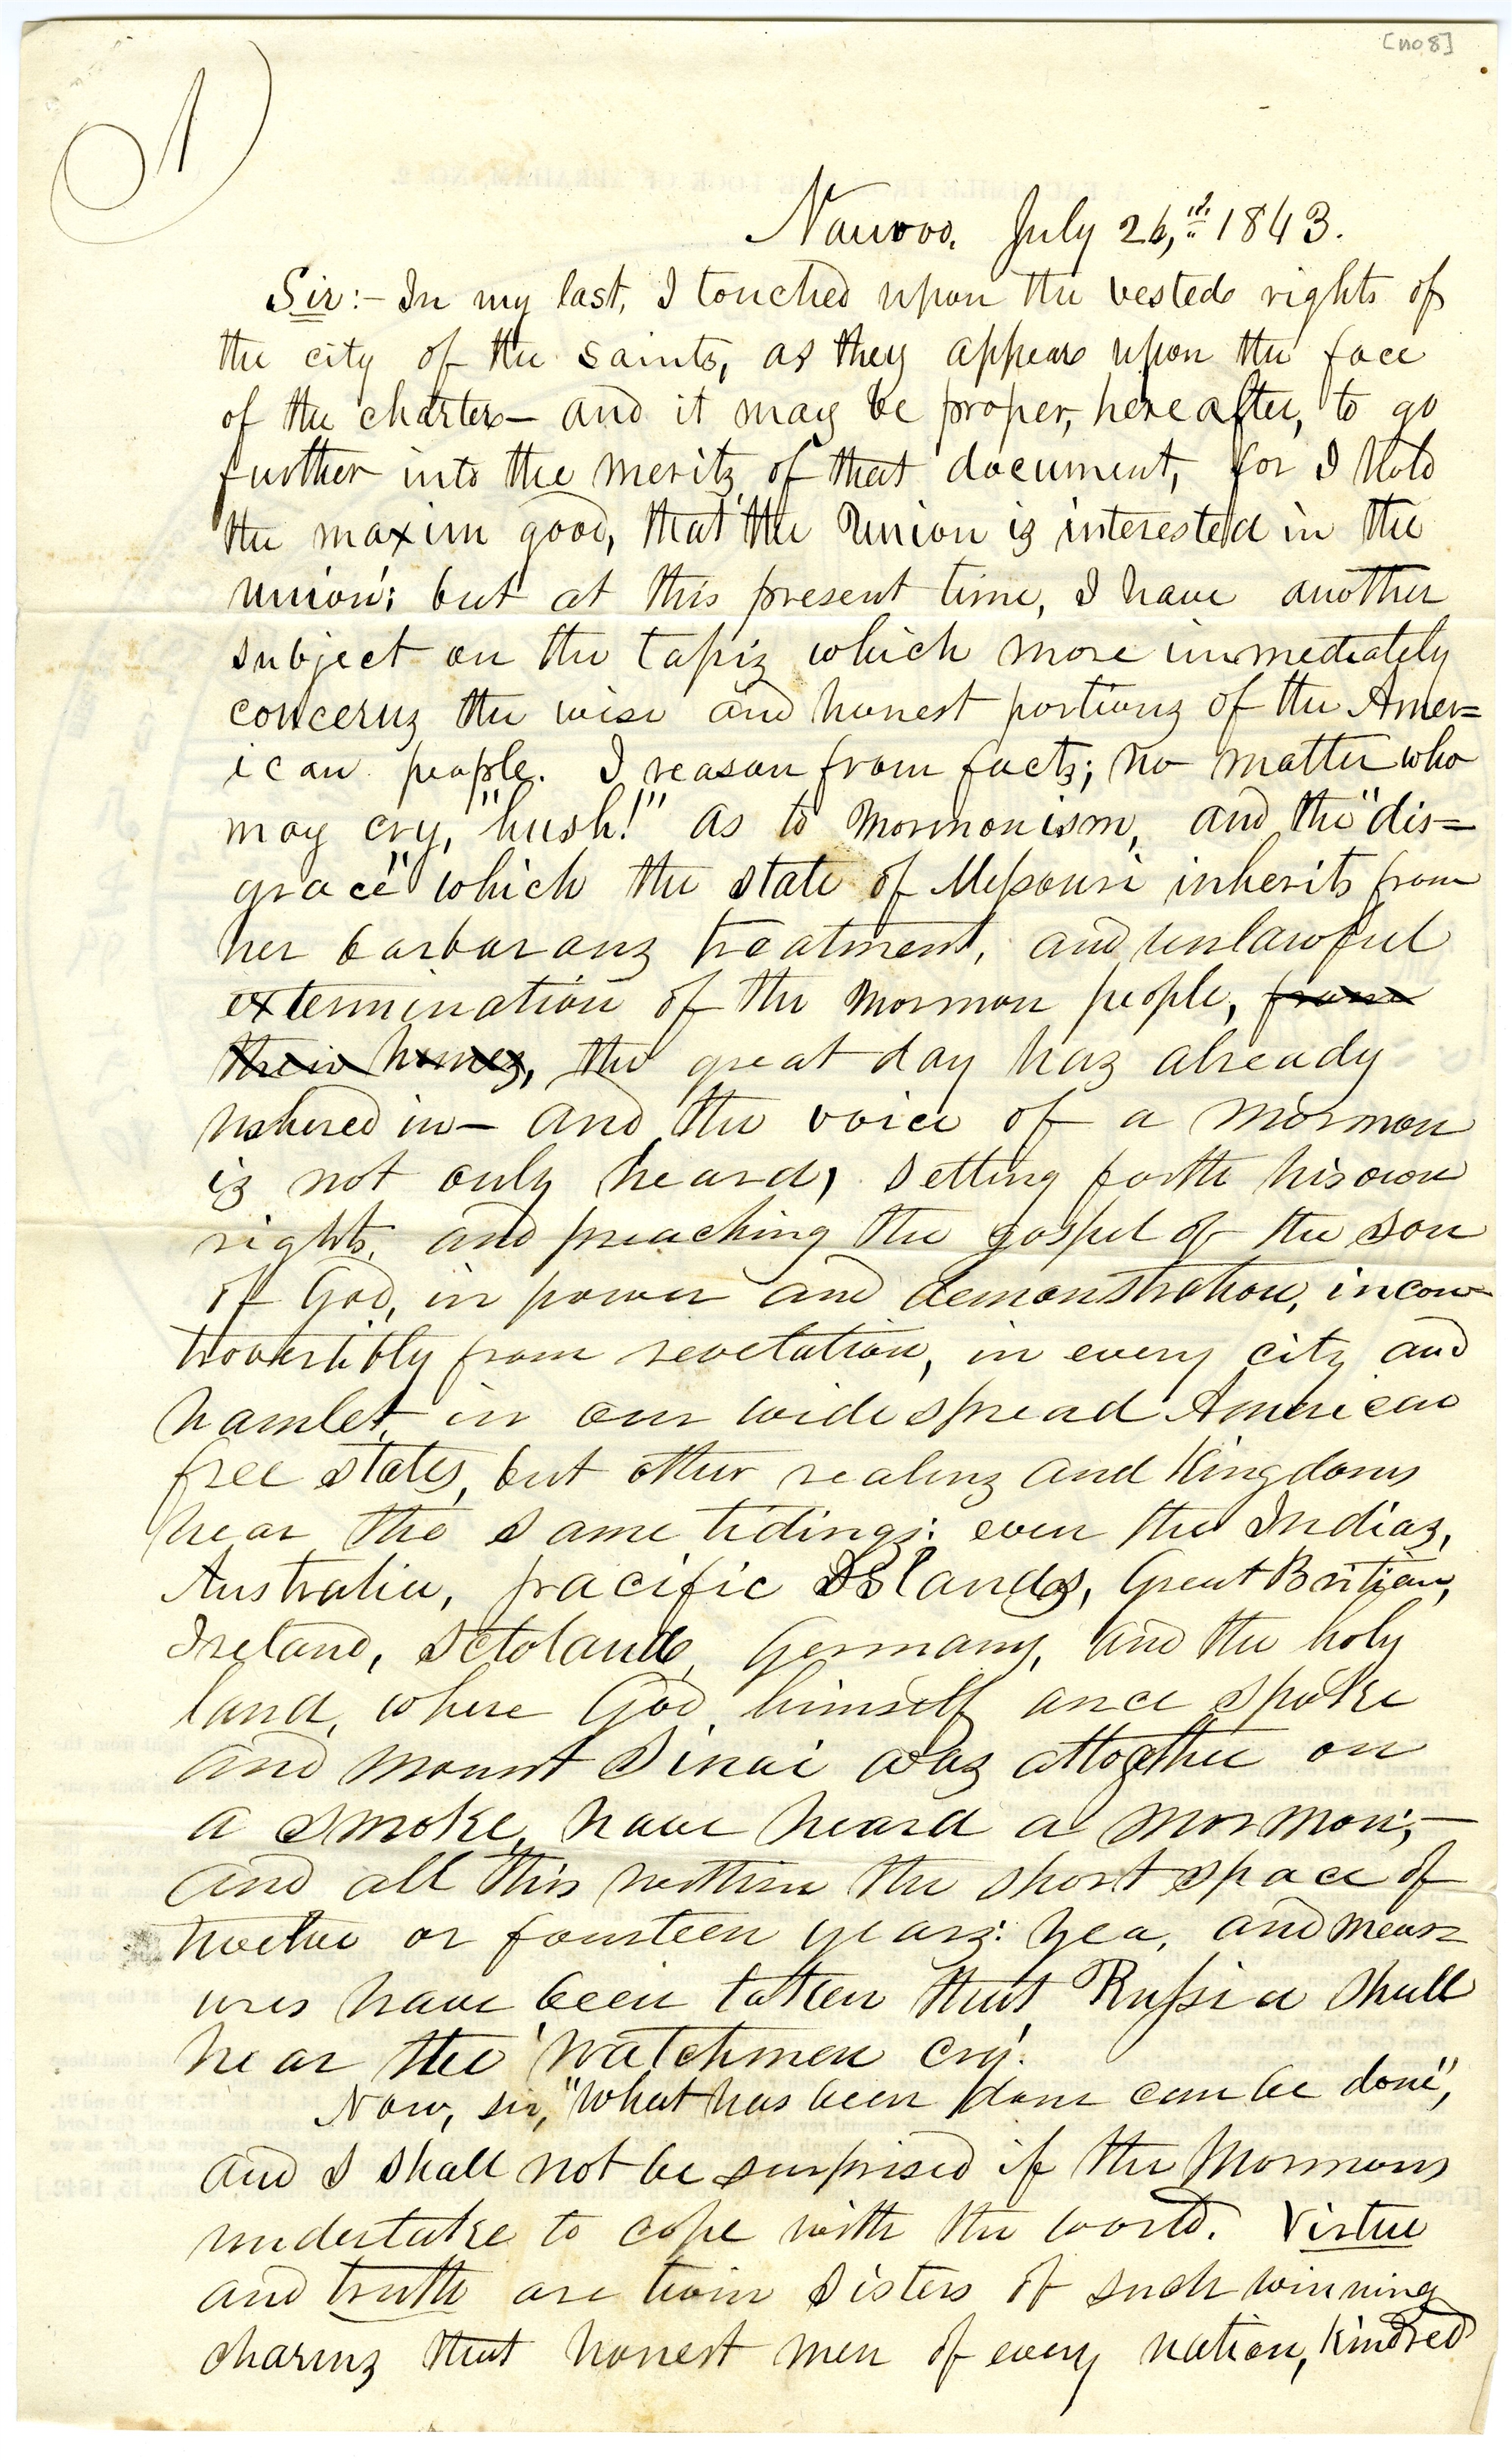 [no 8]
1
Nauvoo, July 26,th 1843.
Sir:– In my last, I touched upon the vested rights of
the city of the saints, as they appear upon the face
of the charter– and it may be proper, hereafter, to go
further into the meritz of that document, for I hold
the maxim good, that 'the Union is interested in the
union'; but at this present time, I have another
subject on the tapiz which more immediately
concernz the wise and honest portionz of the Amer=
ican people. I reason from factz; no matter who
may cry, "hush!" as to Mormonism, and the "dis=
grace" which the state of Missouri inherits from
her barbaranz treatment, and unlawful
extermination of the Mormon people, from
their homez, the great day haz already
ushered in– and the voice of a Mormon
iz not only heard, setting forth his own
rights, and preaching the gospel of the son
of God, in power and demonstration, incon-
trovertibly from revelation, in every city and
hamlet in our wide spread American
free states, but other realmz and kingdoms
hear the same tidings: even the Indiaz,
Australia, pacific Islands, Great Britian,
Ireland, Sctoland, Germany, and the holy
land, where God himself once spoke
and Mount Sinai waz altogther on
a smoke, have heard a Mormon;–
and all this within the short space of
twelve or fourteen yearz: yea, and meas=
ures have been taken that Russia shall
hear the 'watchmen cry.'
Now, sir, "what has been done can be done",
and I shall not be surprised if the Mormons
undertake to cope with the world. Virtue
and truth are twin sisters of such winning
charmz that honest men of every nation, kindred